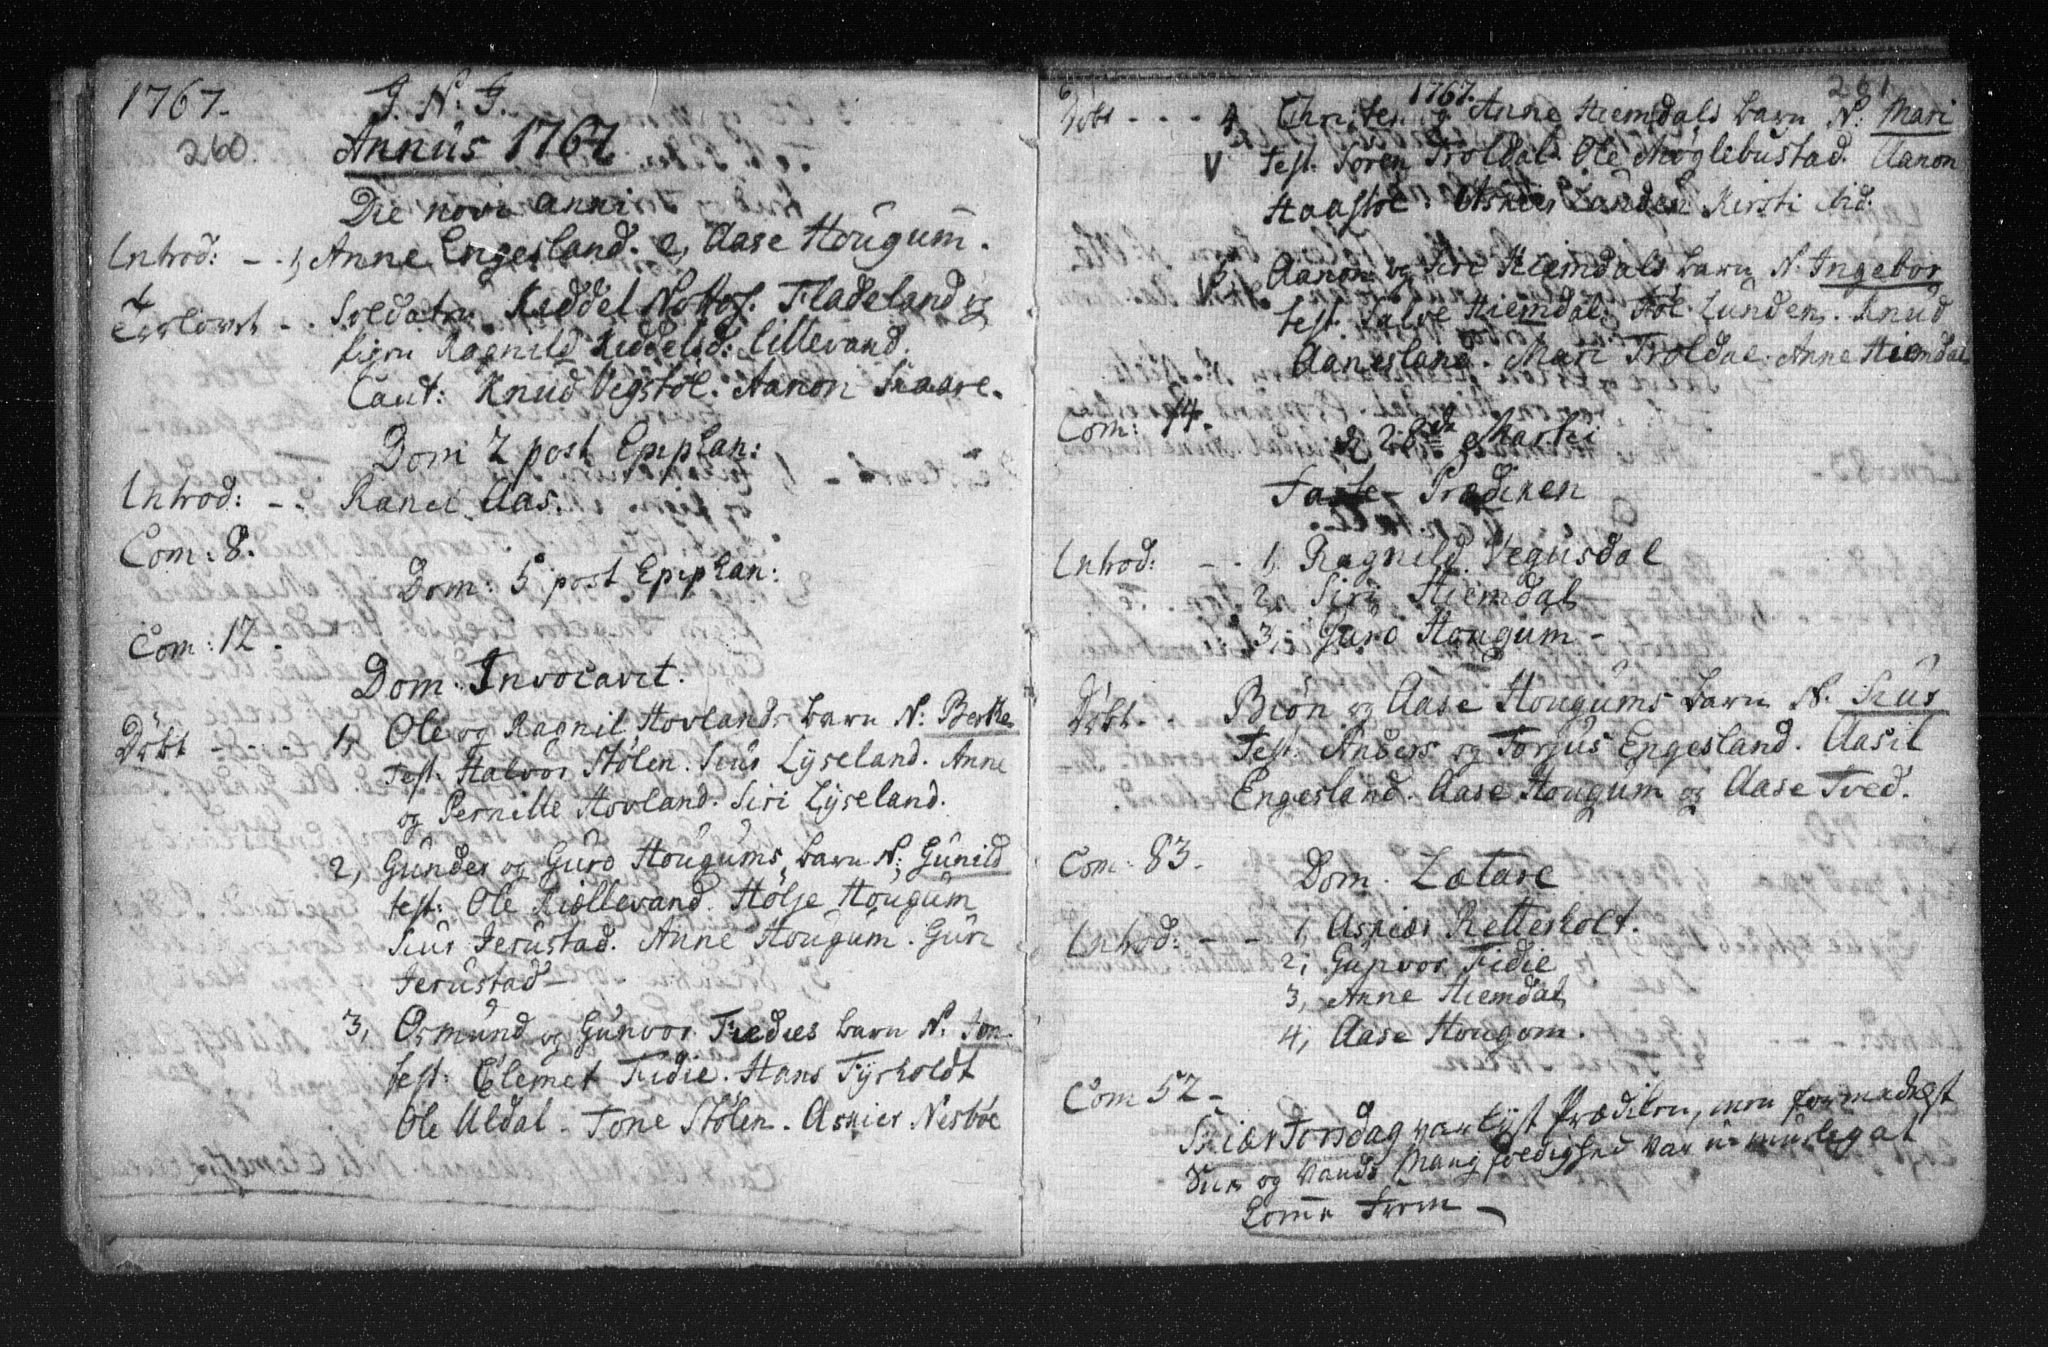 1767.
260.
J. N. J.
Annus 1767
Die novi anni
Introd: - - 1, Anne Engesland. 2, Aase Hougum.
Trolovet - Soldaten Keddel Nottof. Fladeland og
pigen Ragnild Keddelsd: Lillevand.
Caut: Knud Vegstøl. Aanon Skaare.
Dom 2 post Epiphan:
Introd: - - Ranei Aas.
Com: 8.
Dom: 5 post Epiphan:
Com: 12.
Dom. Invocavit.
Døbt - - - 1, Ole og Ragnil Hovlands barn N: Berthe
test: Halvor Stølen. Siur Lyseland. Anne
og Pernille Hovland. Siri Lyseland.
2, Gunder og Guro Hougums barn N: Gunild
test: Ole Kiællevand. Hølje Hougum
Siur Jerustad. Anne Hougum. Guri
Jerustad -
3, Osmund og Gunvor Fiedies barn N. Jon
test: Clemet Fidie. Hans Tyrholdt
Ole Uldal - Tone Stølen. Askier Nesbøe
1767.
261
Døbt - - - 4, Christen og Anne Hiemdals barn N: Mari
V test. Søren Troldal. Ole Møglebustad. Aanon
Haastøl. Askier Lunden Kirsti ibid.
5, Aanon og Siri Hiemdals barn N. Ingebor
test. Salve Hiemdal. Lunden. Knud
Aanesland. Mari Troldal. Anne Hiemdal
Com: 14.
d 26 Martii
Faste-Prædiken
Introd: - - 1, Ragnild Vegusdal
2, Siri Hiemdal
3, Guro Hougum -
Døbt. - Biøn og Aase Hougums barn N. Siur
Test. Anders og Torjus Engesland. Aasil
Engesland. Aase Hougum og Aase Tved.
Com. 83.
Dom. Lætare
Introd: - - 1, Askier Retterholt.
2, Gunvor Fidie
3, Anne Hiemdal
4, Aase Hougom.
Com 52 -
Skiær Torsdag var lyst Prædiken, men formedelst
Siue og Vands Mangfoldighed var u-muelegat
komme frem -